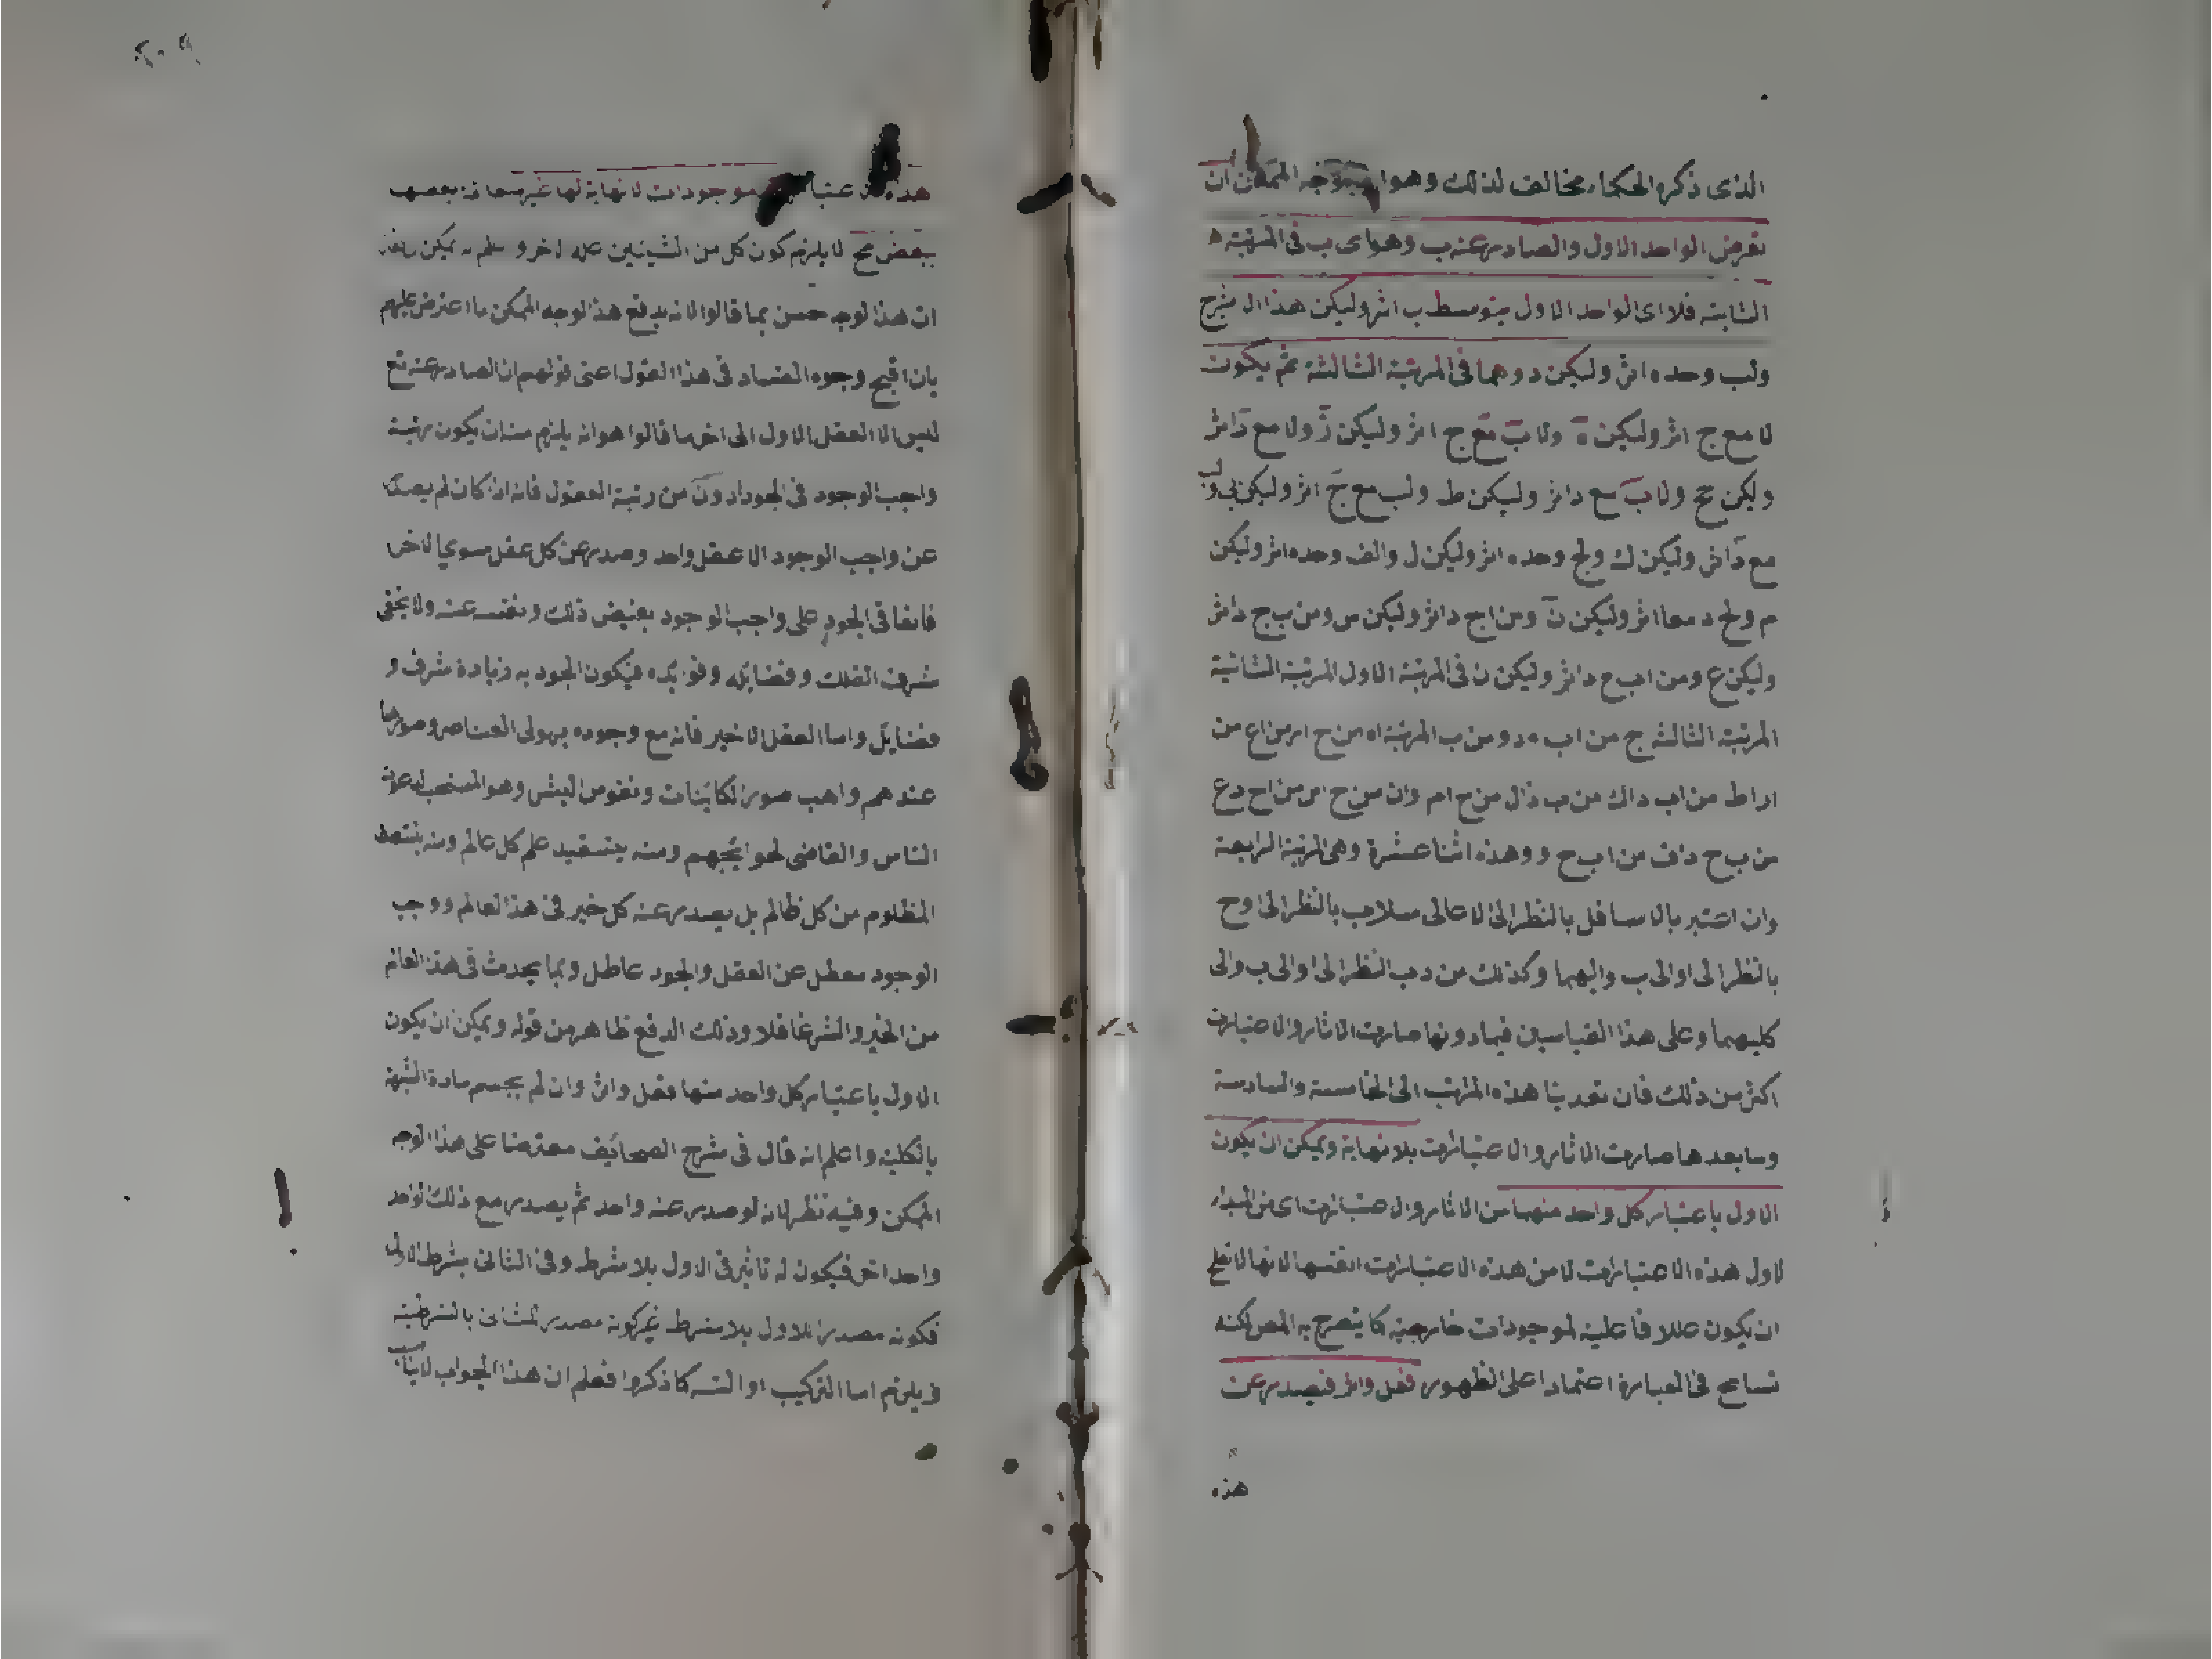 الذى ذكره الحكماء مخالف لذلك وهو الوجه الممكن ان
نفرض الواحد الاول والصادر عنه ب وهو اى ب فى المرتبة
الثانية فلا اى الواحد الاول بتوسط ب اثر وليكن هذا الـ
ولب وحده اثر وليكن د وهما فى المرتبة الثالثة ثم يكون
لا مع ج اثر وليكن ه ولا ب مع ج اثر وليكن ز ولا مع د اثر
وليكن ح ولا ب مع د اثر وليكن ط ولب مع ج اثر وليكن ى ولب
مع د اثر وليكن ك ولج وحده اثر وليكن ل والف وحده اثر وليكن
م ولج د معا اثر وليكن ن ومن ا ج د اثر وليكن س ومن ب ج د اثر
وليكن ع ومن ا ب ج د اثر وليكن ف فى المرتبة الاول المرتبة الثانية
المرتبة الثالثة ج من ا ب د ومن ب المرتبة
من ب ح د ا ف من ا ب ح د وهذه اثنا عشرة وهى المرتبة الرابعة
وان اعتبر بالاسافل بالنظر الى الاعالى مثلا ب بالنظر الى ا وج
بالنظر الى ا والى ب واليهما وكذلك من د ب النظر الى ا والى ب والى
كليهما وعلى هذا القياسين فيما دونها صارت الاثار والاعتبارات
اكثر من ذلك فان تعدينا هذه المراتب الى الخامسة والسادسة
وما بعدها صارت الاثار والاعتبارات بلا نهاية ويمكن ان يكون
الاول باعتبار كل واحد منها من الاثار والاعتبارات اى من المبدا
لاول هذه الاعتبارات لا من هذه الاعتبارات انفسها لانها لا تصلح
ان يكون عللا فاعلية لموجودات خارجية كما يصرح به المص لكنه
تسامح فى العبارة اعتمادا على الظهور فعل واثر فيصدر عن
هذه
٢٠٩
هذه موجودات لا نهاية لها غير محاذ بعضها
ببعض مح لا يلزم كون كل من الشيئين علة لاخر و يمكن
ان هذا الوجه حسن بما قالوا الا انه يدفع هذا الوجه الممكن ما اعترض عليهم
بان اقبح وجوه الفساد فى هذا القول اعنى قولهم ان الصادر عنه تع
ليس الا العقل الاول الى اخر ما قالوا هو انه يلزم منه ان يكون مرتبة
واجب الوجود فى الجود ادون من رتبة العقول فانه اذا كان لم يصدر
عن واجب الوجود الا عقل واحد وصدر عن كل عقل سوى الاخر
فانفا فى الجود على واجب الوجود بفيض ذلك ونفسه عنه ولا يخفى
شرف الفلك وفضايله وفوايده فيكون الجود به زيادة شرف و
فضايل واما العقل الاخير فانه مع وجوده بهولى العناصر وصورها
عندهم واهب صور الكاينات ونفوس البشر وهو المستجيب لدعاء
الناس والقاضى لحوايجهم ومنه يستفيد علم كل عالم ومنه ينتصف
المظلوم من كل ظالم بل يصدر عنه كل خير فى هذا العالم ووجب
الوجود معطل عن العقل والجود عاطل وبما يحدث فى هذا العالم
من الخير والشر غافلا وذلك الدفع ظاهر من قوله ويمكن ان يكون
الاول باعتبار كل واحد منها فعل واثر وان لم يحسم مادة الشبهة
بالكلية واعلم انه قال فى شرح الصحائف معترضا على هذا الوجه
الممكن وفيه نظر لانه لو صدر عنه واحد ثم يصدر مع ذلك الواحد
واحد اخر فيكون له تاثير فى الاول بلا شرط وفى الثانى بشرط الاول
فكونه مصدرا للاول بلا شرط غير كونه مصدر للثانى بالشرطية
فيلزم اما التركيب او التسه كما ذكروا فعلم ان هذا الجواب لا يناسب